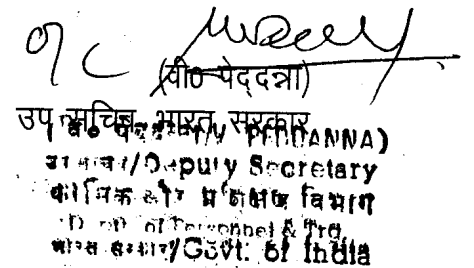 (वी० पेद्दन्ना)
उप सचिव, भारत सरकार
PEDDANNA)
/Deputy Secretary
कार्मिक और प्रशिक्षण विभाग
of Personnel & Trg.
भारत सरकार/Govt. of India